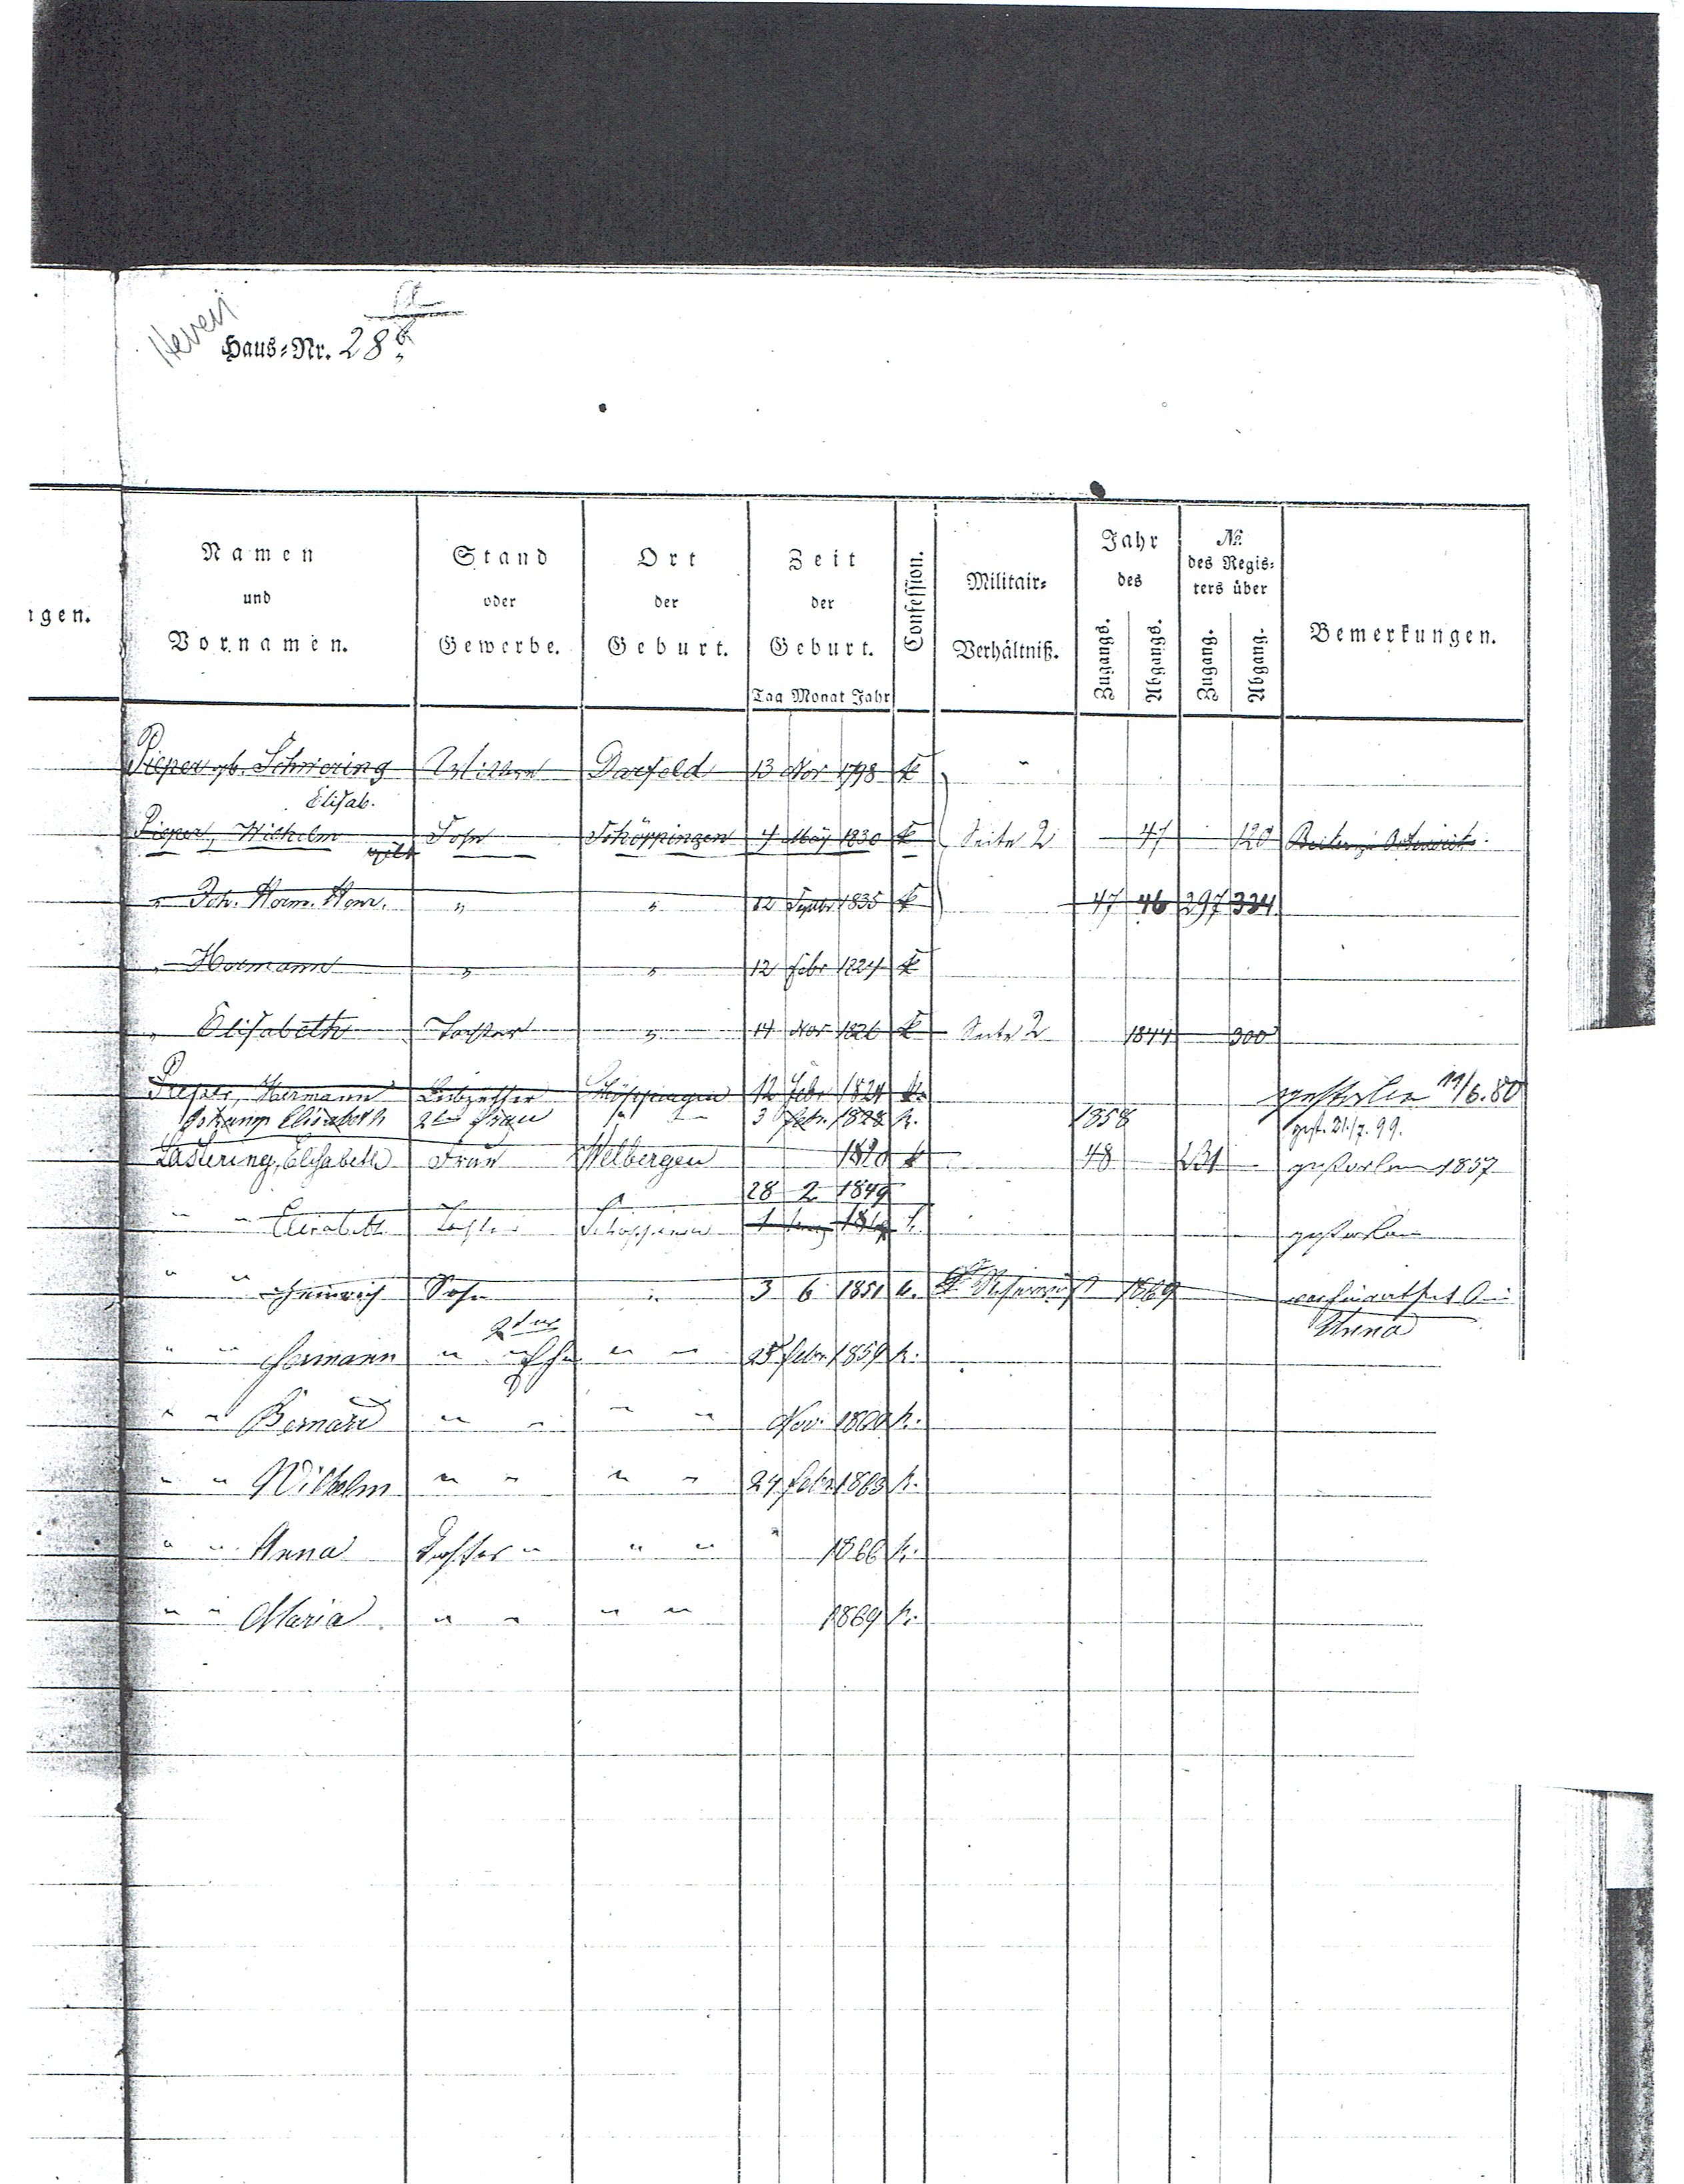 Heven
a
Haus-Nr. 28 b.
ngen.
Namen und Vornamen.
Stand oder Gewerbe.
Ort der Geburt.
Zeit der Geburt.
Tag Monat Jahr
Confession.
Militair-Verhältniß.
Jahr des
Zugangs. Abgangs.
No. des Registers über
Zugang. Abgang.
Bemerkungen.
Pieper gb. Schwering Darfeld 13 Nov 1798 k
Elisab.
Pieper, Wilhelm Sohn Schöppingen 4 May 1830 k Seite 2 47 120
" Joh. Herm. Henr. " " 12 Septbr 1835 k 47 46 297 334
" Hermann " " 12 Febr 1824 k
" Elisabeth Tochter " 14 Nov 1826 k Seite 2 1844 300
Pieper, Hermann Schöppingen 12 Febr 1824 k. gestorben 11/6.80
Elisabeth 2te Frau " " 3 Febr. 1828 k. 1858 gest. 21/7. 99.
Lastering, Elisabeth Frau Welbergen 1820 k 48 231 gestorben 1857
28 2 1849
" " Elisabeth Tochter Schöppingen 1 k. gestorben
" " Heinrich Sohn " 3 6 1851 k. 1869
Anna
2ter
" " Hermann " " Ehe " " 25 Febr. 1859 k.
" " Bernard " " " " Nov. k.
" " Wilhelm " " " " 24 Febr. 1863 k.
" " Anna Tochter " " " " 1866 k.
" " Maria " " " " 1869 k.